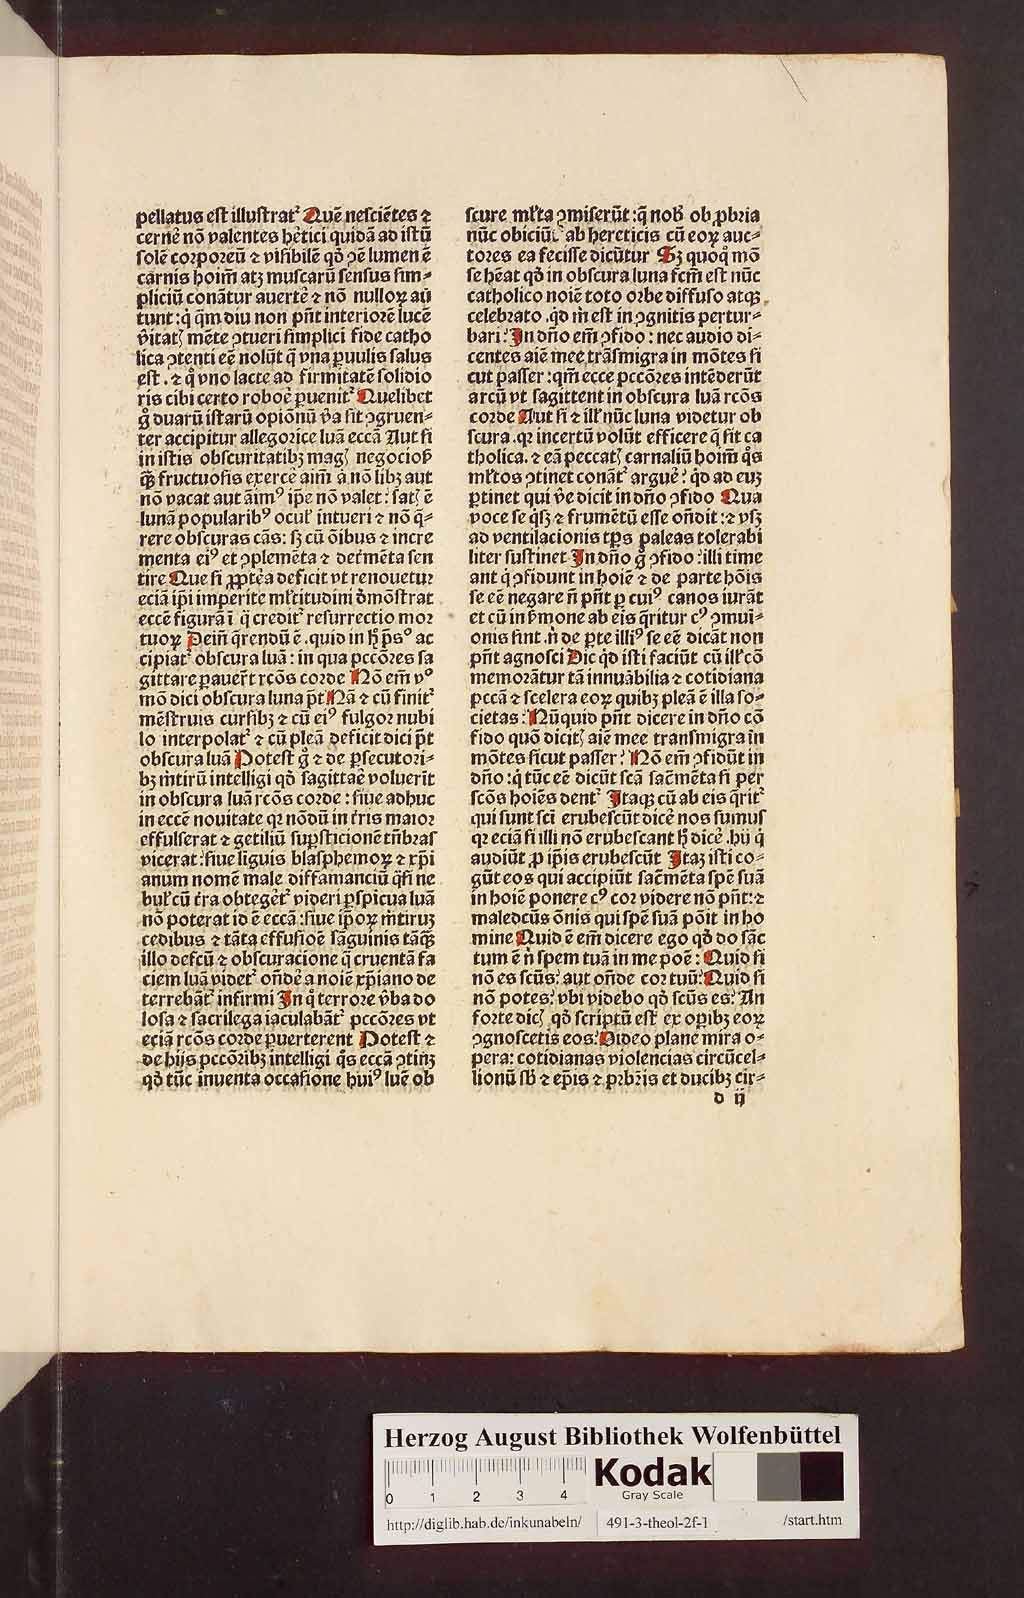 pellatus est illustrat᷑ Quē nesciētes ⁊
cernē nō valentes hētici quidā ad istū
solē corporeū ⁊ visibilē qđ ꝯēe lumen ē
carnis hoīm atꝫ muscarū sensus sim⸗
pliciū conātur avertē ⁊ nō nulloꝝ aū
tunt : q̄ q̄m diu non pn̄t interiorē lucē
mēte ꝯtueri simplici fide catho
lica ꝯtenti eē nolūt q̄ vna ꝑuulis salus
est . ⁊ q̊ vno lacte ad firmitatē solidio
ris cibi certo roboē ꝑuenit᷑ Quelibet
g̊ duarū istarū opiōnū v̄a sit ꝯgruen⸗
ter accipitur allegorice luā eccā Aut si
in istis obscuritatibꝫ negocioꝝ
qꝫ fructuosis exercē aīm̄ a nō libꝫ aut
nō vacat aut āimꝰ ip̄e nō valet : ē
lunā popularibꝰ ocul᷒ intueri ⁊ nō q̄⸗
rere obscuras cās: sꝫ cū ōibus ⁊ incre
menta eiꝰ et ꝯplemēta ⁊ det᷑mēta sen
tire Que si ꝓpt̄ea deficit vt renouetur
eciā ip̄i imperite ml̄titudini d̄mōstrat
eccē figurā ī q̄ credit᷑ resurrectio mor
tuoꝝ Dein̄ q̄rendū ē . quid in ac
cipiat᷑ obscura luā : in qua pccōres sa
gittare ꝑauer̄t rc̄os corde Nō em̄ vͦ
mō dici obscura luna p̄t Nā ⁊ cū finit᷑
mēstruis cursibꝫ ⁊ cū eiꝰ fulgor nubi
lo interpolat᷑ ⁊ cū pleā deficit dici p̄t
obscura luā Potest g̊ ⁊ de ꝑsecutori⸗
bꝫ m̄tirū intelligi qđ sagittaē voluerīt
in obscura luā rc̄os corde : siue adhuc
in eccē nouitate qꝛ nōdū in t̄ris maior
effulserat ⁊ getiliū suꝑsticionē tn̄bras
vicerat : siue liguis blasphemoꝝ ⁊ xp̄i
anum nomē male diffamanciū q̄si ne
bul᷒ cū t̄ra obteget᷑ videri ꝑspicua luā
nō poterat id ē eccā : siue ip̄oꝝ m̄tirꝫ
cedibus ⁊ tāta effusioē sāguinis tāqꝫ
illo defcū ⁊ obscuracione q̄ cruentā fa
ciem luā videt᷑ on̄de a noiē xp̄iano de
terrebāt᷑ infirmi In q̊ terrore v̄ba do
losa ⁊ sacrilega iaculabāt᷑ pccōres vt
eciā rc̄os corde ꝑuerterent Potest ⁊
de hijs pccōribꝫ intelligi q̊s eccā ꝯtinꝫ
qđ tūc inuenta occasione huiꝰ luē ob
scure ml̄ta ꝯmiserūt : q̄ nob᷒ ob ꝓbria
nūc obiciūt᷑ ab hereticis cū eoꝝ auc⸗
tores ea fecisse dicūtur Sꝫ quoqͦ mō
se hēat qđ in obscura luna fcm̄ est nūc
catholico noiē toto orbe diffuso atqꝫ
celebrato . qđ m̄ est in ꝯgnitis pertur⸗
bari? In dn̄o em̄ ꝯfido : nec audio di⸗
centes aīe mee trāsmigra in mōtes si
cut passer : qm̄ ecce pccōres intēderūt
arcū vt sagittent in obscura luā rc̄os
corde Aut si ⁊ ill᷒ nūc luna videtur ob
scura . qꝛ incertū volūt efficere q̄ sit ca
tholica . ⁊ eā carnaliū hoīm q̊s
ml̄tos ꝯtinet conāt᷑ arguē? qđ ad euꝫ
ꝑtinet qui v̄e dicit in dn̄o ꝯfido Qua
voce se q̊sꝫ ⁊ frumētū esse on̄dit : ⁊ vsꝫ
ad ventilacionis tp̄s paleas tolerabi
liter sustinet In dn̄o g̊ ꝯfido : illi time
ant q̄ ꝯfidunt in hoiē ⁊ de parte hōis
se eē negare n̄ pn̄t ꝑ cuiꝰ canos iurāt
et cū in s̄mone ab eis q̄ritur cꝰ ꝯmui⸗
onis sint . n̄ de ꝑte illiꝰ se eē dicāt non
pn̄t agnosci Dic qđ isti faciūt cū ill᷒ cō
memorātur tā innuābilia ⁊ cotidiana
pccā ⁊ scelera eoꝝ quibꝫ pleā ē illa so⸗
cietas? Nūquid pn̄t dicere in dn̄o cō
fido quō aīe mee transmigra in
mōtes sicut passer? Nō em̄ ꝯfidūt in
dn̄o : q̄ tūc eē dicūt scā sac̄mēta si per
sc̄os hoiēs dent᷑ Itaqꝫ cū ab eis q̄rit᷑
qui sunt sc̄i erubescūt dicē nos sumus
qꝛ eciā si illi nō erubescant dicē . hij q̄
audiūt ꝓ ip̄is erubescūt Itaꝫ isti co⸗
gūt eos qui accipiūt sac̄mēta spē suā
in hoiē ponere cꝰ cor videre nō pn̄t: ⁊
maledcūs ōnis qui spē suā pōit in ho
mine Quid ē em̄ dicere ego qđ do sāc
tum ē n̄ spem tuā in me poē : Quid si
nō es sc̄us? aut on̄de cor tuū? Quid si
nō potes? vbi videbo qđ sc̄us es? An
forte qđ scriptū est ex oꝑibꝫ eoꝝ
ꝯgnoscetis eos? Video plane mira o⸗
pera: cotidianas violencias circūcel⸗
lionū sb̄ ⁊ ep̄is ⁊ prb̄ris et ducibꝫ cir⸗
d ij
Herzog August Bibliothek Wolfenbüttel
0 1 2 3 4
Kodak
Gray Scale
http://diglib.hab.de/inkunabeln/ 491-3-theol-2f-1 /start.htm